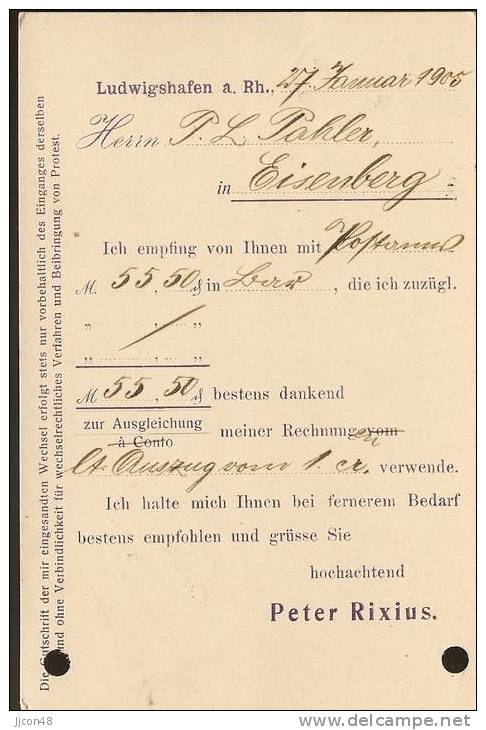 Ludwigshafen a. Rh., 27. Januar 1905
Herrn P. L. Pahler,
in Eisenberg
Ich empfing von Ihnen mit Postanw
M. 55,50 ₰ in Bar, die ich zuzügl.
„ / , „
„ , „
M 55,50 ₰ bestens dankend
zur Ausgleichung
à Conto
meiner Rechnungen vom
lt. Auszug vom 1. cr. verwende.
Ich halte mich Ihnen bei fernerem Bedarf
bestens empfohlen und grüsse Sie
hochachtend
Peter Rixius.
Die Gutschrift der mir eingesandten Wechsel erfolgt stets nur vorbehaltlich des Einganges derselben
und ohne Verbindlichkeit für wechselrechtliches Verfahren und Beibringung von Protest.
jjcon48
www.delcampe.net